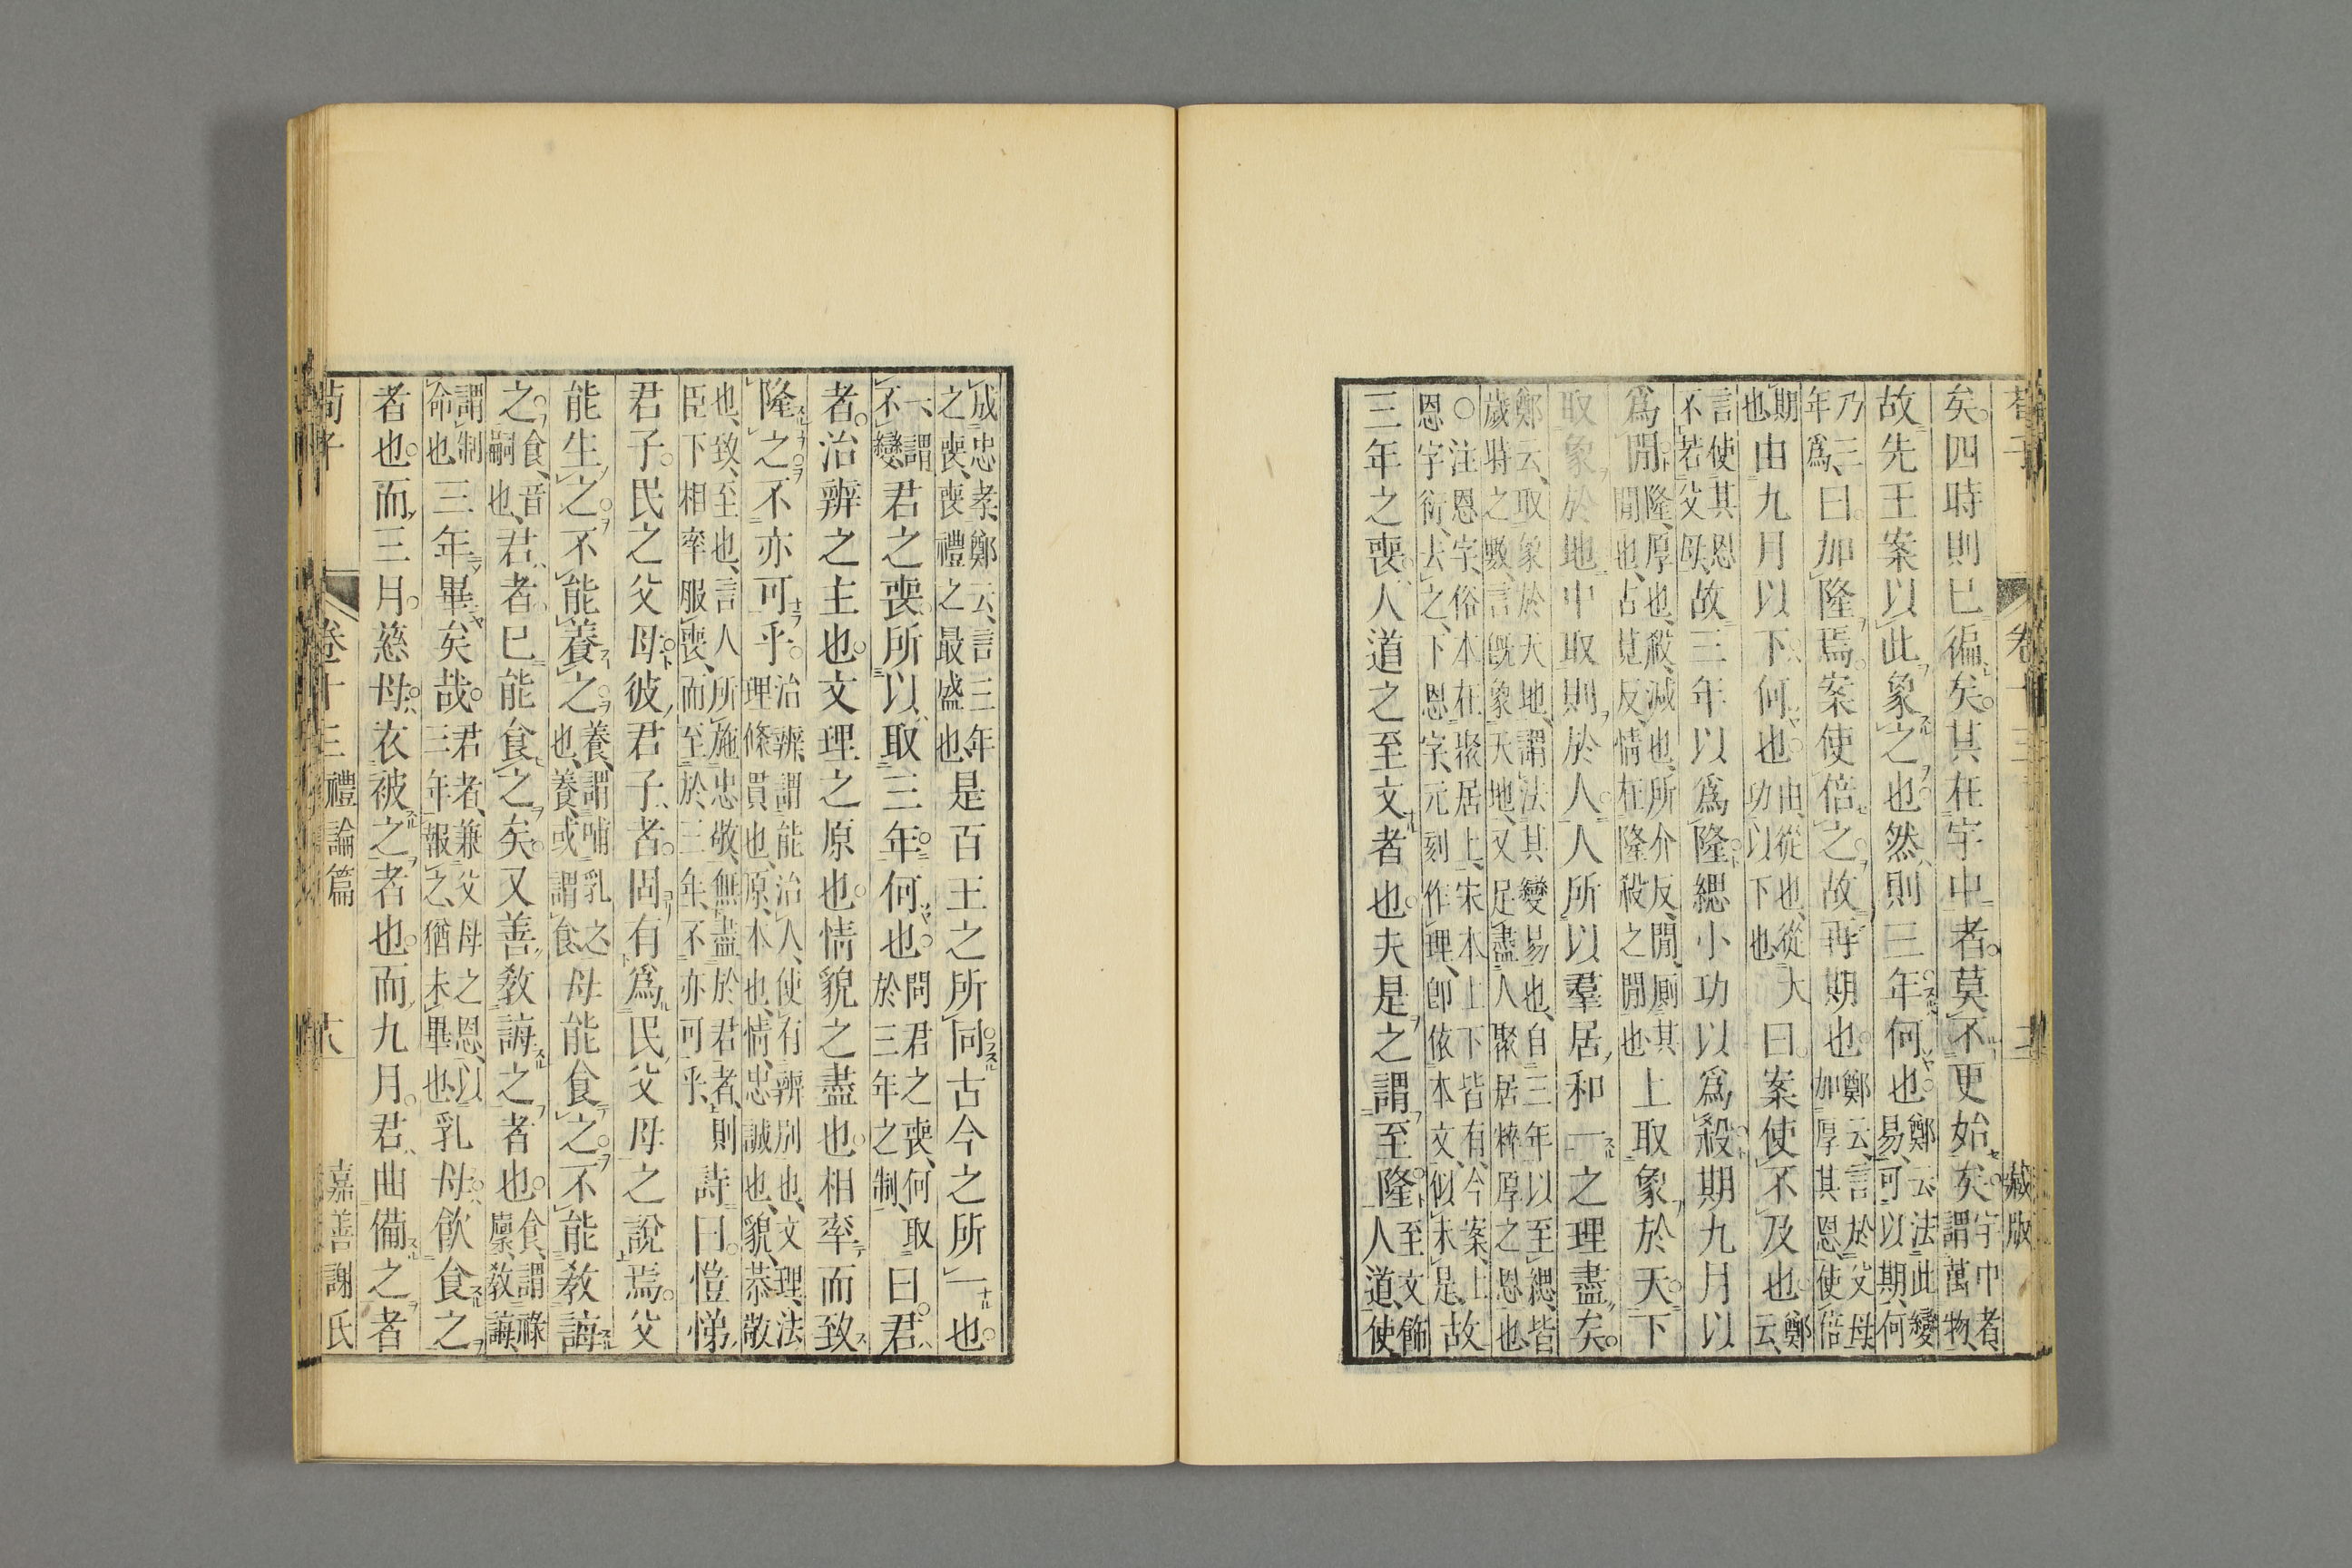 藏版
矣四時則已徧矣其在宇中者莫不更始矣宇中者謂萬物
故先王案以此象之也然則三年何也鄭云法此變易可以期何
乃三年爲曰加隆焉案使倍之故再期也鄭云言於父母加厚其恩使倍
期也由九月以下何也由從也從大功以下也曰案使不及也鄭云
言使其恩不若父母故三年以爲隆緦小功以爲殺期九月以
爲閒隆厚也殺減也所介反閒厠其閒也古莧反情在隆殺之閒也上取象於天下
取象於地中取則於人人所以羣居和一之理盡矣
鄭云取象於天地謂法其變易也自三年以至緦皆歲時之數言旣象天地又足盡人聚居粹厚之恩也
○注恩字俗本在聚居上宋本上下皆有今案上恩字衍去之下恩字元刻作理卽依本文似未足故
三年之喪人道之至文者也夫是之謂至隆至文飾人道使
成忠孝鄭云言三年之喪喪禮之最盛也是百王之所同古今之所一也
一謂不變君之喪所以取三年何也問君之喪何取於三年之制曰君
者治辨之主也文理之原也情貌之盡也相率而致
隆之不亦可乎治辨謂能治人使有辨別也文理法理條貫也原本也情忠誠也貌恭敬
也致至也言人所施忠敬無盡於君者則臣下相率服喪而至於三年不亦可乎詩曰愷悌
君子民之父母彼君子者固有爲民父母之說焉父
能生之不能養之養謂哺乳之也養或謂食母能食之不能敎誨
之食音嗣也君者已能食之矣又善敎誨之者也食謂祿廩敎誨
謂制命也三年畢矣哉君者兼父母之恩以三年報之猶未畢也乳母飮食之
者也而三月慈母衣被之者也而九月君曲備之者
荀子 卷十三 禮論篇 十八 嘉善謝氏